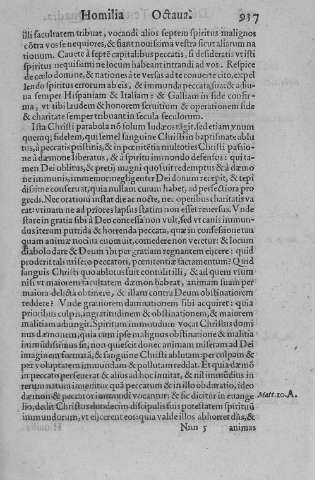 Homilia Octaua. 937
illi facultatem tribuat, vocandi alios septem spiritus malignos
cõtra vos se nequiores, & fiant nouissima vestra sicut aliarum na
tionum. Cauete à septẽ capitalibus peccatis, si desideratis vt isti
spiritus nequissimi ne locum habeant intrandi ad vos. Respice
de cœlo domine, & nationes à te versas ad te conuerte cito, expel
lendo spiritus errorum ab eis, & immunda peccata,
semper Hispaniam & Italiam: & Galliam in fide confir-
ma, vt tibi laudem & honorem seruitium & operationem fide
& charitate semper tribuant in secula seculorum.
Ista Christi parabola nõ solum Iudæos tãgit, sed etiam vnum
quemq; fidelem, qui semel sanguine Christi in baptismate ablu
tus, à peccatis pristinis, & in pœnitẽtia multoties Christi passio-
ne à dæmone liberatus, & à spiritu immundo defensus: qui ta-
men Dei oblitus, & pretij magni quo fuit redemptus & à dæmo
ne immunis, immemor negligenter Dei donum recepit, & tepi
dissime conseruat, quia nullam curam habet, ad perfectiora pro
gredi. Nec orationi instat die ac nocte, nec operibus charitatis va
cat: vt in autume ad priores lapsus statim non esset reuersus. Vnde
stare in gratia sibi à Deo concessa non vult, sed vt canis immun-
dus iterum putrida & horrenda peccata, quæ in confessione tan
quam animæ nociua euomuit, comedere non veretur: & locum
diabolo dare & Deum ibi per gratiam regnantem eijcere: quid
proderit talis miseto peccatori, pœnitentiæ sacramentum? Quid
sanguis Christi quo ablutus fuit contulit illi, & ad quem vium
nisi vt maiorem facultatem dæmon habeat, animam suam per
maiora delicta obtinere, & illam contra Deum obstinatiorem
reddere? Vnde grauiorem damnationem sibi acquiret: quia
prioribus culpis, ingratitudinem & obstinationem, & maiorem
malitiam adiungit. Spiritum immundum vocat Christus domi
nus dæmonem, quia cum ipse malignus obstinatione & malitia
immũdissimus sit, non quiescit donec animam miseram ad Dei
imaginem formatã, & sanguine Christi ablutam: per culpam &
per voluptatem immundam & pollutam reddat. Et quia dæmõ
in peccato perseuerat & alios ad hoc inuitat, & nil immũdius in
rerum natura inuenitur quã peccatum & in illo obduratio, ideo
dæmon & peccator immundi vocantur: & sic dicitur in euange
lio, dedit Christus duodecim discipulis suis potestatem spirituũ Matt. 10. A.
immundorum, vt eijcerent eos: quia valde illos abhorret d̃ns, &
Nnn 5 animas